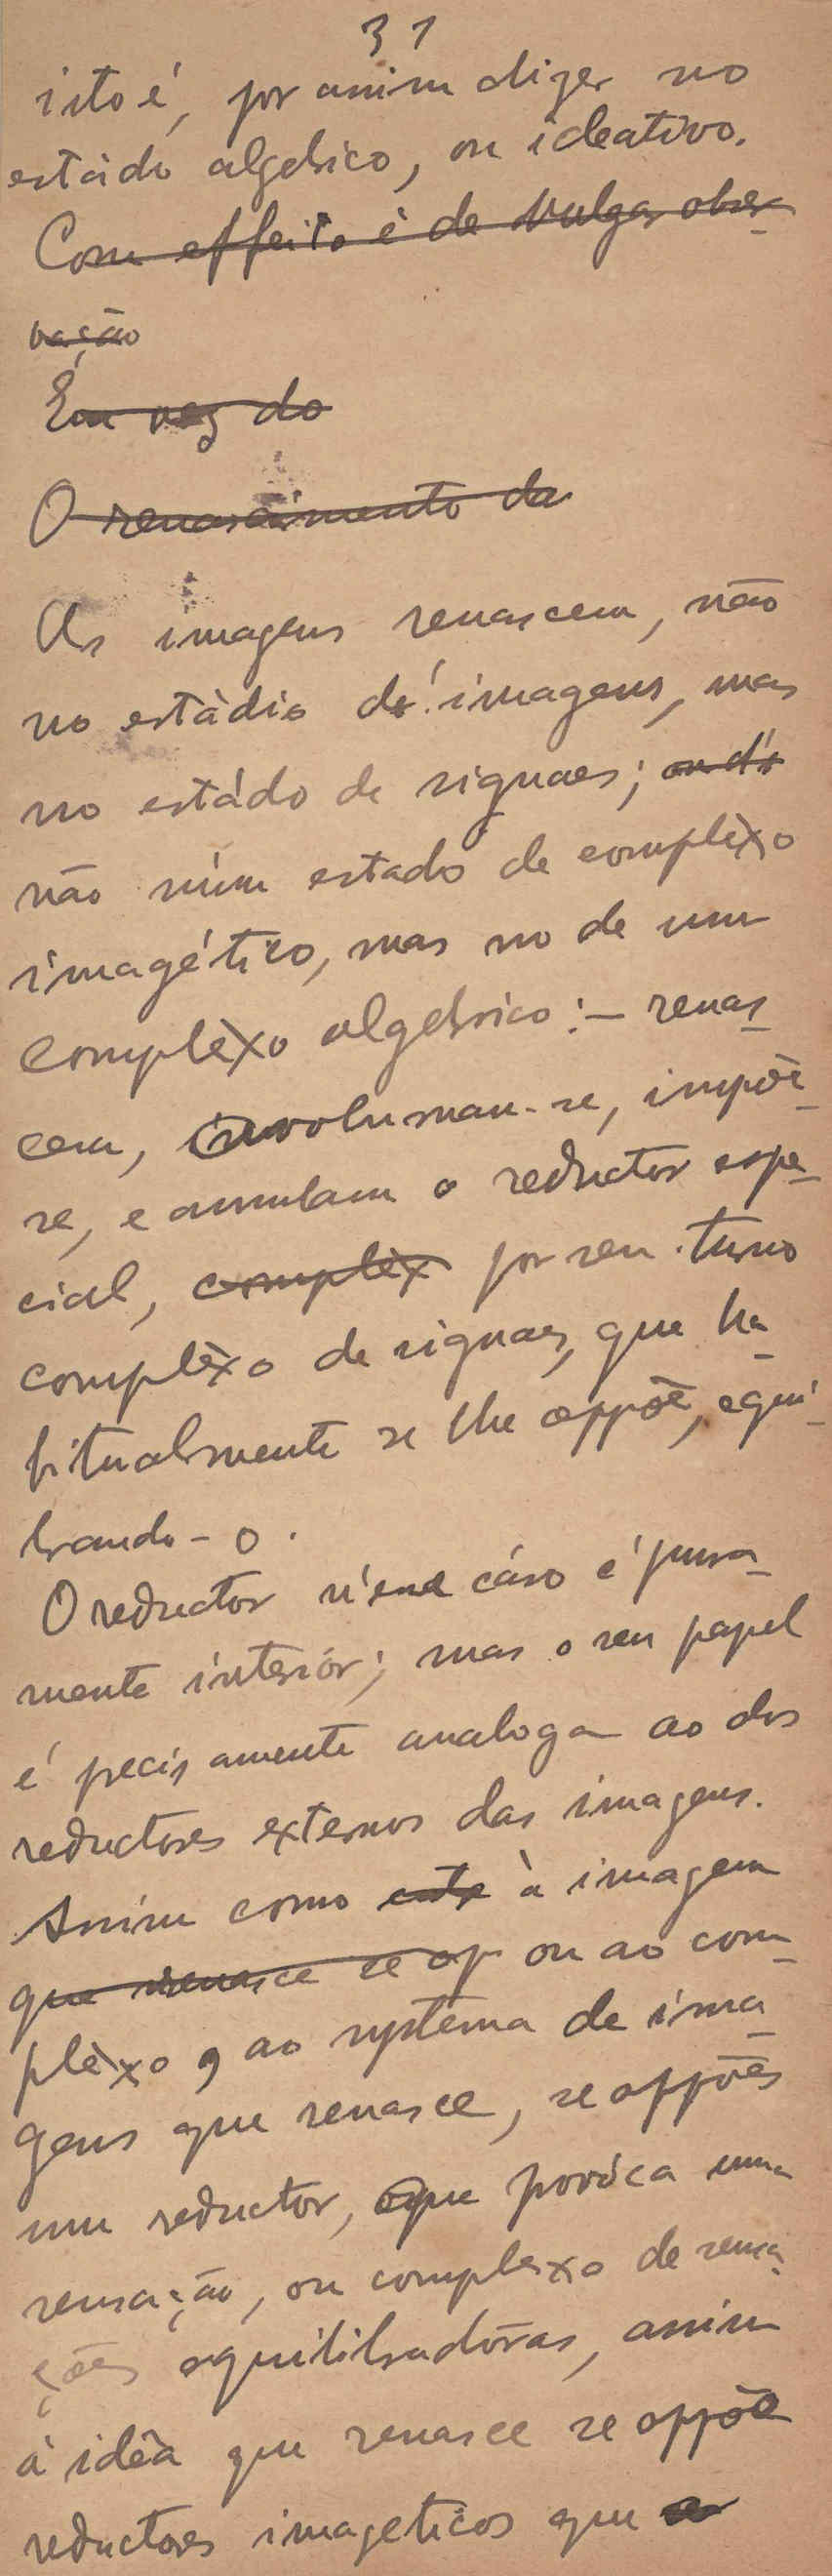 31
isto é, por assim dizer no
estádo algebico, ou ideativo.
Com effeito é de vulgar obser-
vação
Em vez do
O renascimento da
As imagens renascem, não
no estàdio de imagens, mas
no estádo de signaes; ou d's
não núm estado de complèxo
imagético, mas no de um
complèxo algebrico:— renas-
cem, avolumam-se, impõe-
se, e annulam o reductor espe-
cial, complèx por seu turno
complèxo de signaes, que ha-
bitualmente se lhe oppõe, equi-
brando-o.
O reductor n'esse cáso é pura-
mente interiór; mas o seu papel
é precisamente analogo ao dos
reductores externos das imagens.
Assim como este à imagem
que renasce se op ou ao com-
plèxo, ao systema de ima-
gens que renasce, se oppões
um reductor, que provóca uma
sensação, ou complexo de sensa-
ções equilibradôras, assim
á idêa que renasce se oppõe
reductores imageticos que